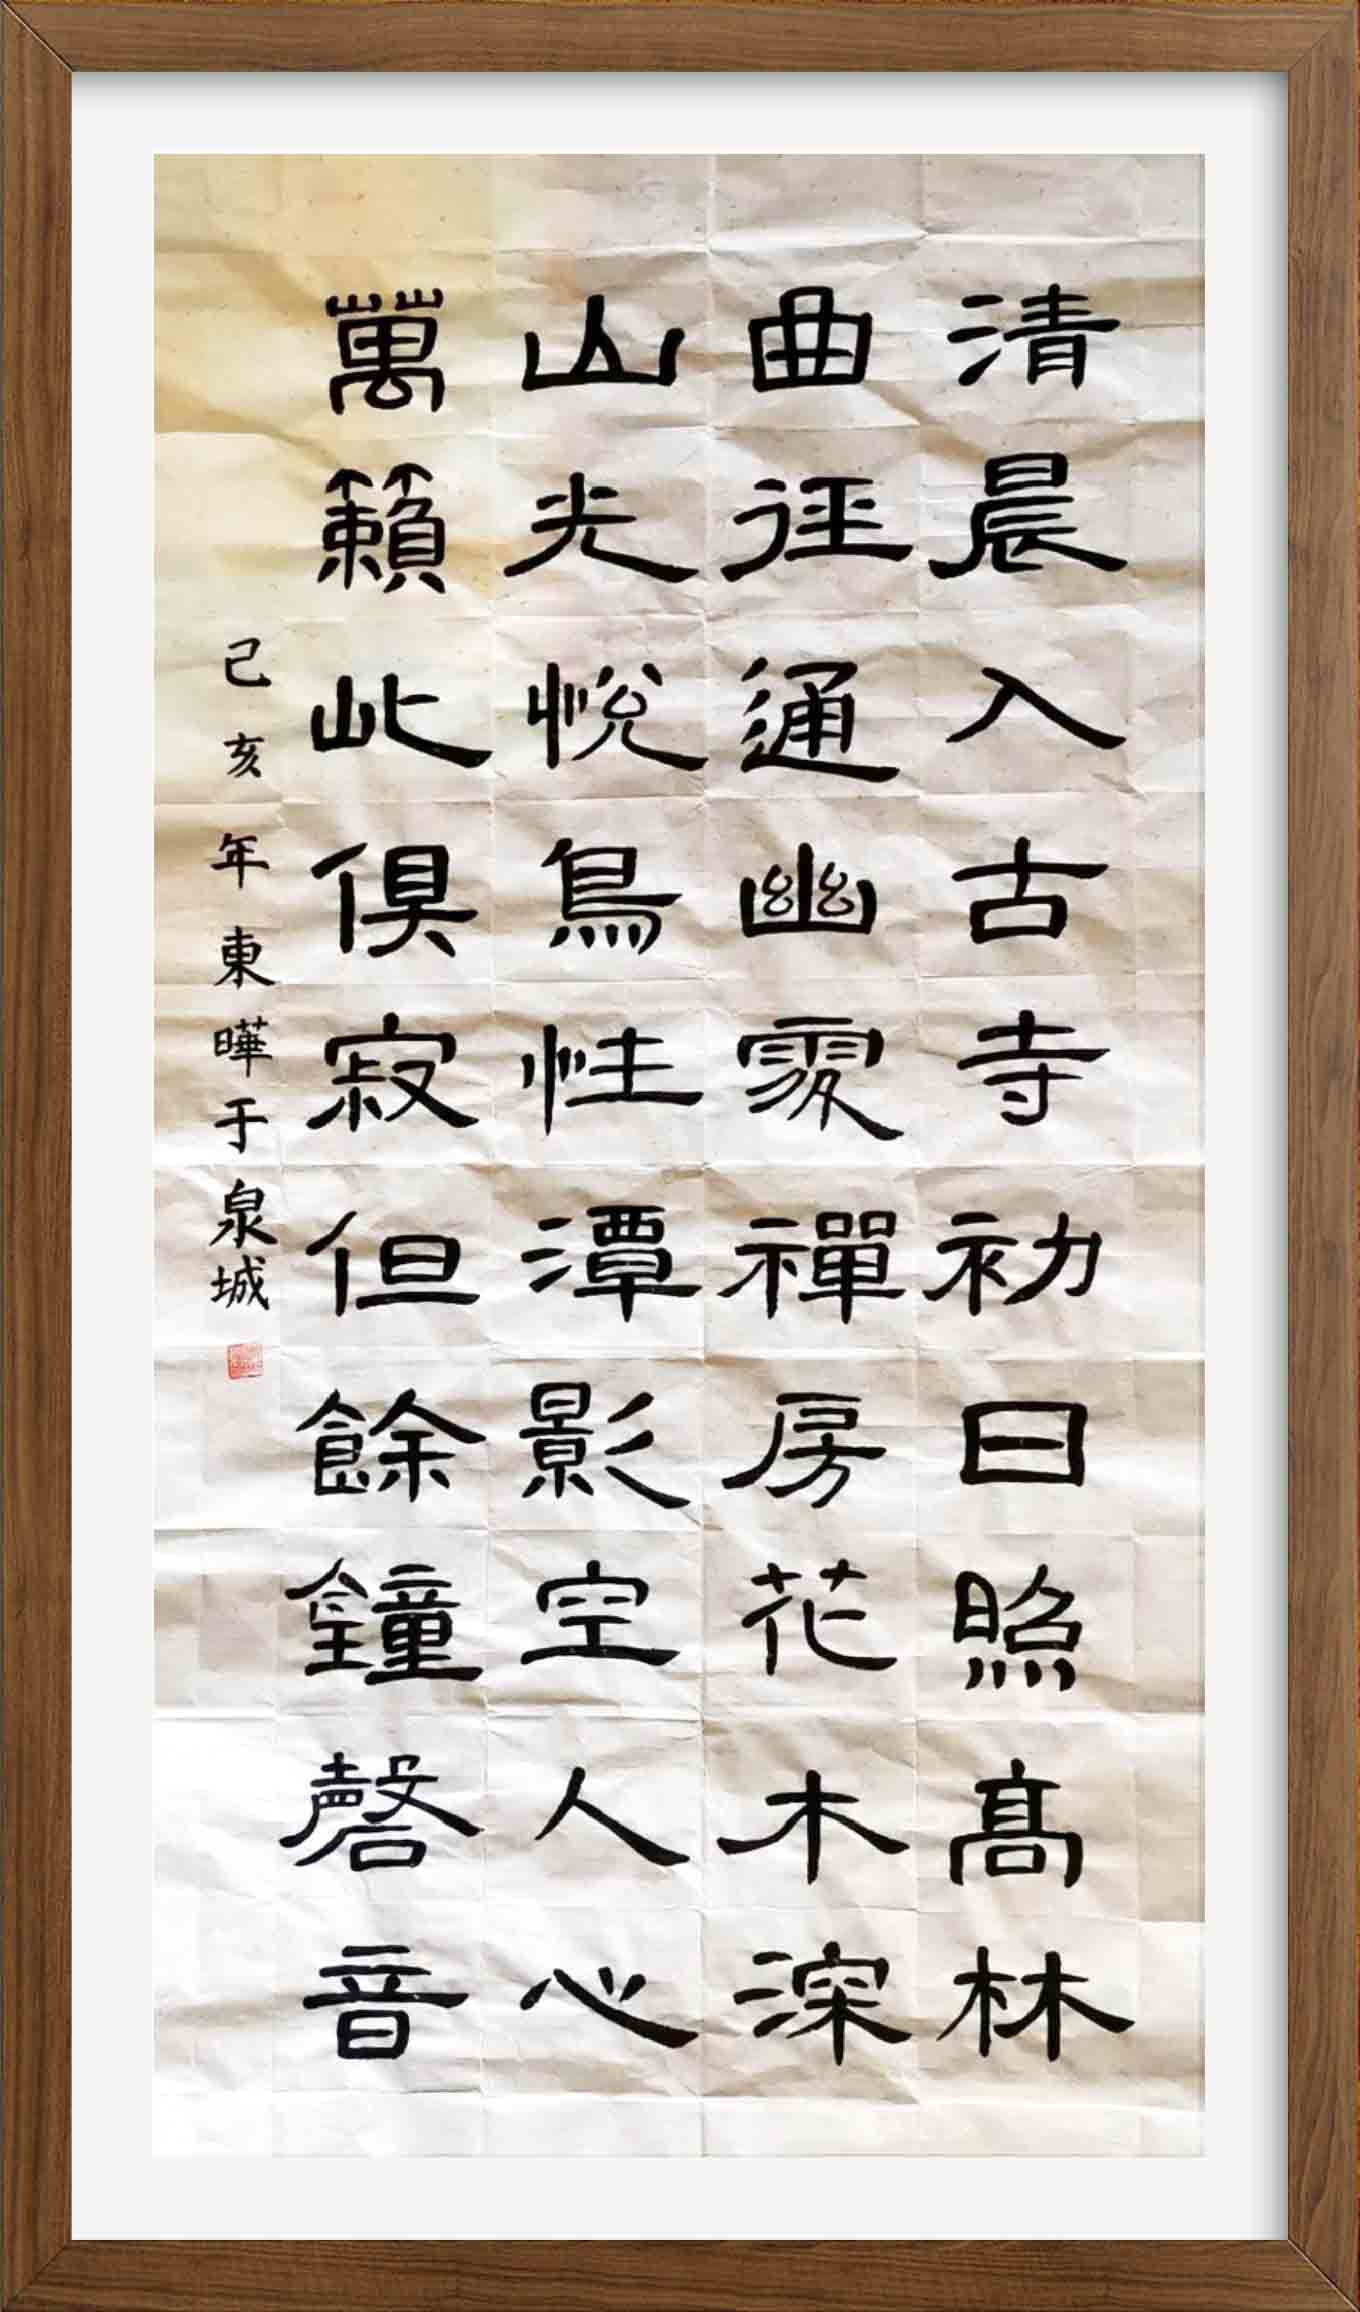 清晨入古寺初日照高林
曲徑通幽處禪房花木深
山光悅鳥性潭影空人心
萬籟此俱寂但餘鐘磬音
己亥年東曄于泉城